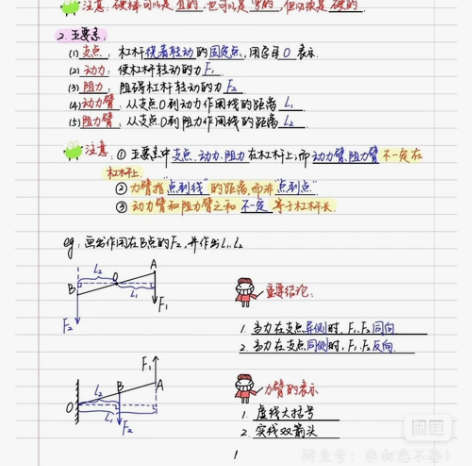 注意：硬棒可以是直的，也可以是弯的，但必须是硬的
2. 五要素：
(1) 支点：杠杆绕着转动的固定点，用字母O表示
(2) 动力：使杠杆转动的力F₁
(3) 阻力：阻碍杠杆转动的力F₂
(4) 动力臂：从支点O到动力作用线的距离 L₁
(5) 阻力臂：从支点O到阻力作用线的距离 L₂
注意：① 五要素中支点、动力、阻力在杠杆上，而动力臂、阻力臂不一定在
杠杆上
② 力臂指“点到线”的距离，而非“点到点”
③ 动力臂和阻力臂之和不一定等于杠杆长
eg：画出作用在B点的F₂，并作出L₁、L₂
A
L₂
O
B
L₁
F₁
F₂
重要结论：
1. 当力在支点异侧时，F₁、F₂同向
2. 当力在支点同侧时，F₁、F₂反向
F₁
B
A
L₂
O
L₁
F₂
力臂的表示
1. 虚线大括号
2. 实线双箭头
闲鱼